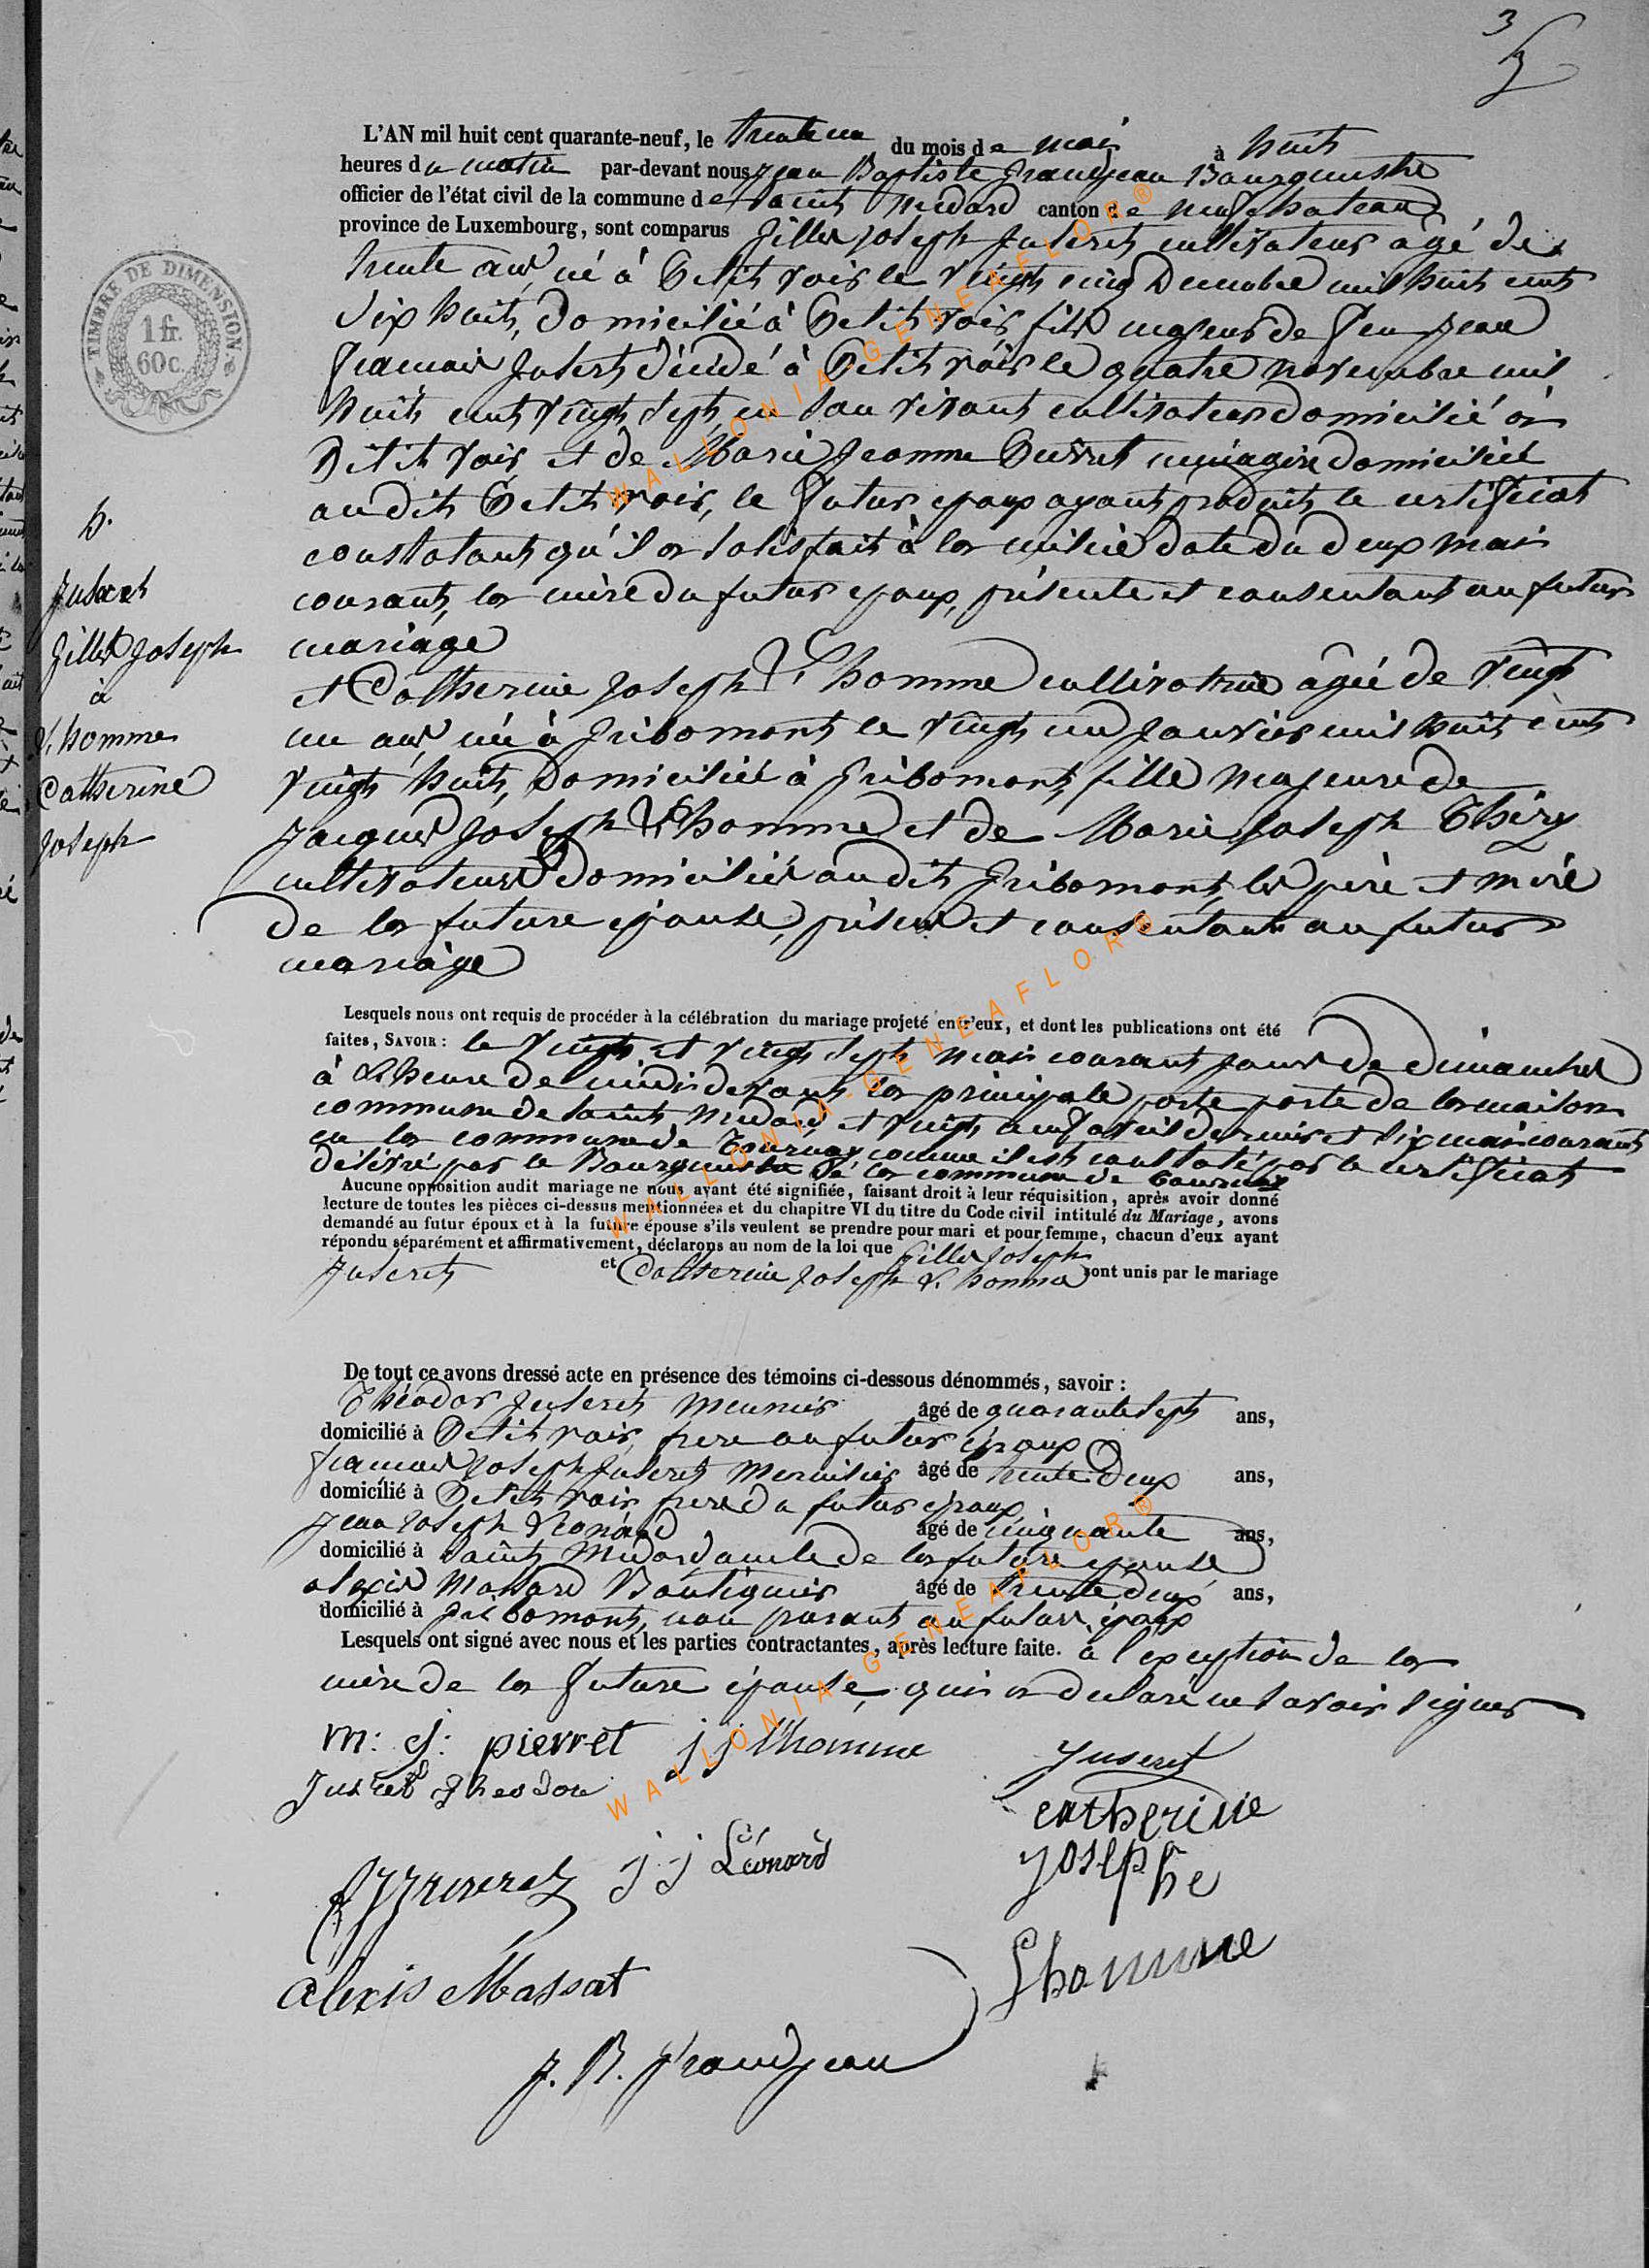 3
L'AN mil huit cent quarante-neuf, le trente un du mois de mai à huit
heures du matin par-devant nous Jean Baptiste Grandjean Bourgmestre
officier de l'état civil de la commune de Saint Medard canton de Neufchateau
province de Luxembourg, sont comparus Gilles Joseph Juseret cultivateur âgé de
trente ans né à Petit voir le vingt cinq Decembre mil huit cent
dix huit, domicilié à Petit voir, fils majeur de feu Jean
francois Juseret décidé à Petit voir le quatre novembre mil
huit cent vingt sept, en son vivant cultivateur domicilié à
Petit voir et de Marie Jeanne Pierret ménagère domiciliée
au dit Petit voir, le futur epoux ayant produit le certificat
constatant qu'il a satisfait à la milice date du deux mai
courant, la mère du futur epoux, présente et consentant au futur
mariage
et Catherine Joseph L'homme cultivatrice agée de vingt
un ans, née à Gribomont le vingt un Janvier mil huit cent
vingt huit, domiciliée à Gribomont, fille majeure de
Jacques Joseph L'homme et de Marie Joseph Théry
cultivateurs domiciliés au dit Gribomont, les père et mère
de la future épouse, présent et consentant au futur
mariage
h.
Juseret
Gilles Joseph
à
L'homme
Catherine
Joseph
TIMBRE DE DIMENSION
1 fr.
60 c.
Lesquels nous ont requis de procéder à la célébration du mariage projeté entr'eux, et dont les publications ont été
faites, SAVOIR : le vingt et vingt sept mai courant jour de dimanche
à L'heure de midi devant la principale porte porte de la maison
commune de Saint Medard et vingt neuf avril dernier et six mai courant
en la commune de Tournay comme il est constaté par le certificat
délivré par le Bourgmestre de la commune de Tournay
Aucune opposition audit mariage ne nous ayant été signifiée, faisant droit à leur réquisition, après avoir donné
lecture de toutes les pièces ci-dessus mentionnées et du chapitre VI du titre du Code civil intitulé du Mariage, avons
demandé au futur époux et à la future épouse s'ils veulent se prendre pour mari et pour femme, chacun d'eux ayant
répondu séparément et affirmativement, déclarons au nom de la loi que Gilles Joseph
Juseret et Catherine Joseph L'homme sont unis par le mariage
De tout ce avons dressé acte en présence des témoins ci-dessous dénommés, savoir :
Théodor Juseret meunier âgé de quarante sept ans,
domicilié à Petit voir, frere au futur époux
francois Joseph Juseret Menuisier âgé de trente deux ans,
domicilié à Petit voir frere du futur époux
Jean Joseph Léonard âgé de cinquante ans,
domicilié à Saint Medard oncle de la future epouse
Alexis Massard Boutiquier âgé de trente deux ans,
domicilié à Gribomont, non parent au futur époux
Lesquels ont signé avec nous et les parties contractantes, après lecture faite. à l'exception de la
mère de la future épouse, qui a declaré ne savoir signer
m: j: pierret j j lhomme Juseret
Juseret Theodore catherine
j j Léonard Josephe
Alexis Massat Lhomme
J. B. Grandjean
WALLONIA-GENEAFLOR®
WALLONIA-GENEAFLOR®
WALLONIA-GENEAFLOR®